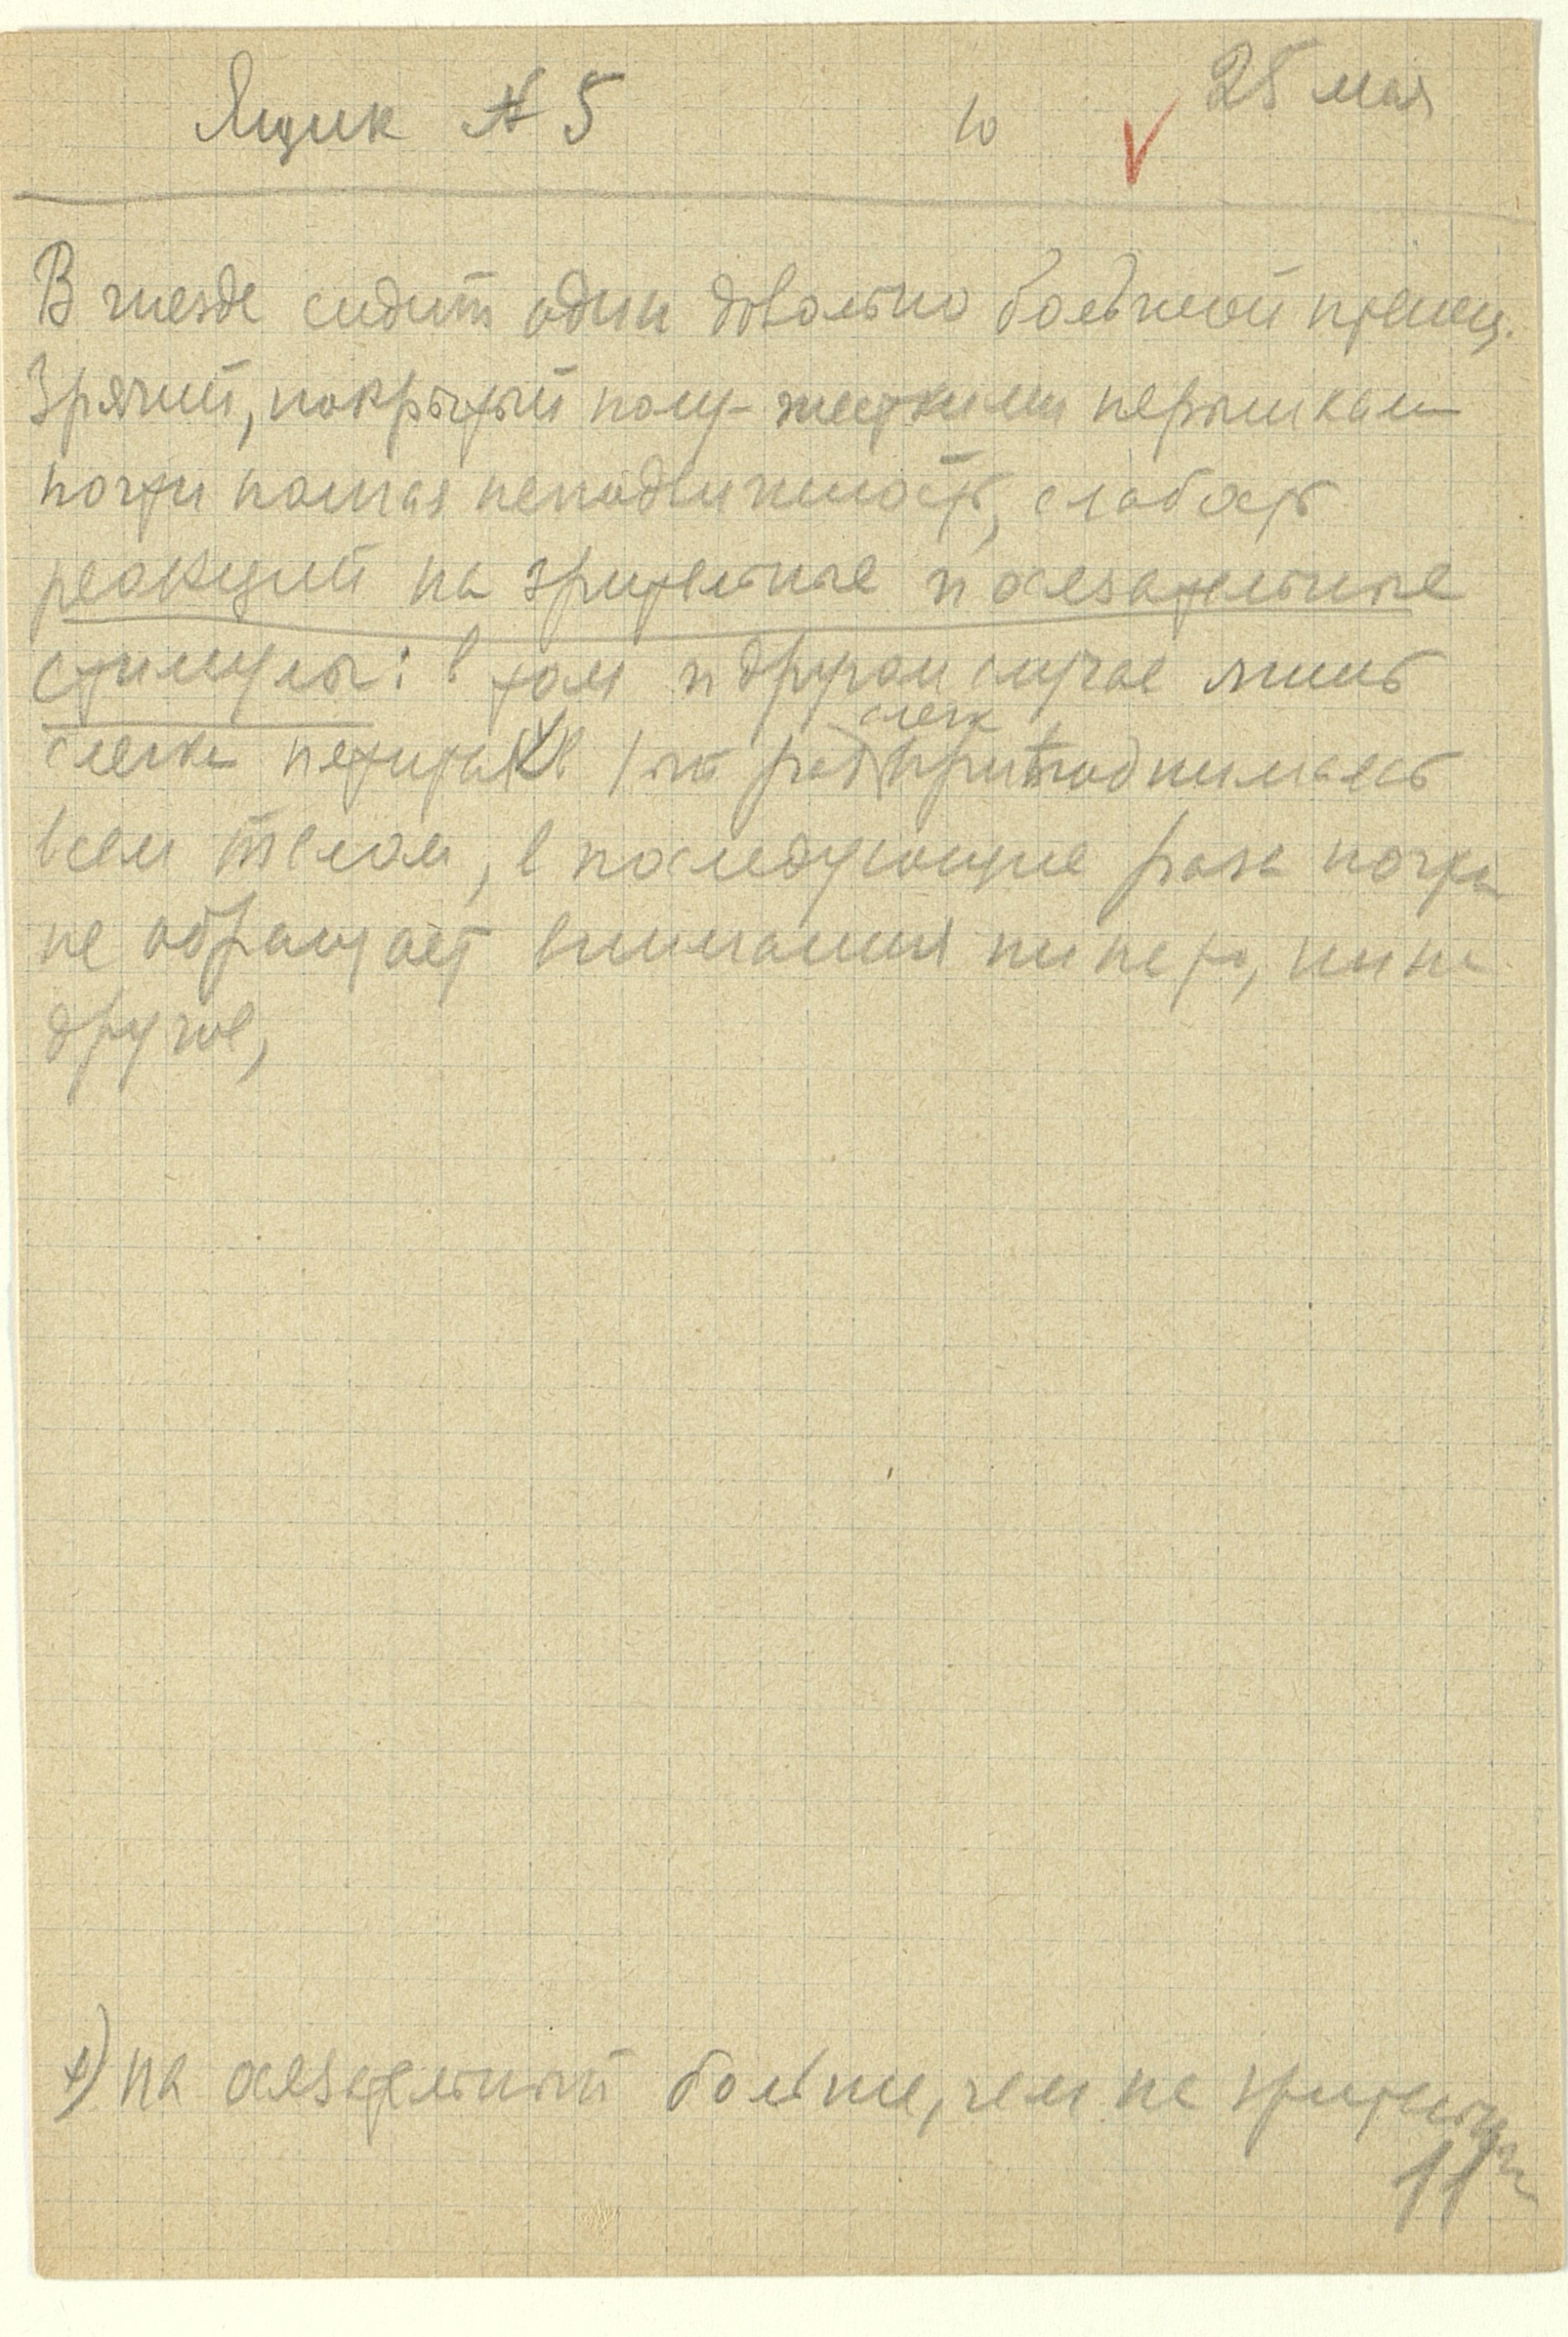 Ящик № 5 10 25 мая
В гнезде сидит один довольно большой птенец.
Зрячий, покрытый полу-жесткими перышками
почти полная неподвижность, слабость
реакций на зрительные и осязательные
стимулы: в том и другом случае лишь
слегка в 1ый раз слегк приподнимаясь
всем телом, в последующие раза почти
не обращает внимания ни на то, ни на
другое,
+) на осязательный больше, чем на зрительн
11